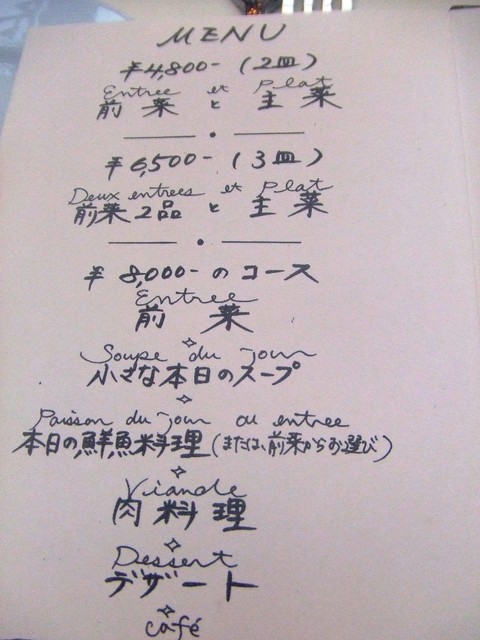 MENU
¥4,800- (2皿)
Entree et Plat
前菜と主菜
¥6,500- (3皿)
Deux entrees et Plat
前菜2品と主菜
¥8,000-のコース
Entree
前菜
Soupe du jour
小さな本日のスープ
Paisson du jour ou entree
本日の鮮魚料理(または、前菜からお選び)
Viande
肉料理
Dessert
デザート
café